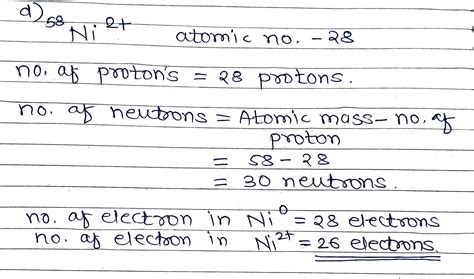 d) ⁵⁸Ni²⁺ atomic no. - 28
no. of proton's = 28 protons.
no. of neutrons = Atomic mass - no. of
proton
= 58 - 28
= 30 neutrons.
no. of electron in Ni⁰ = 28 electrons
no. of electron in Ni²⁺ = 26 electrons.